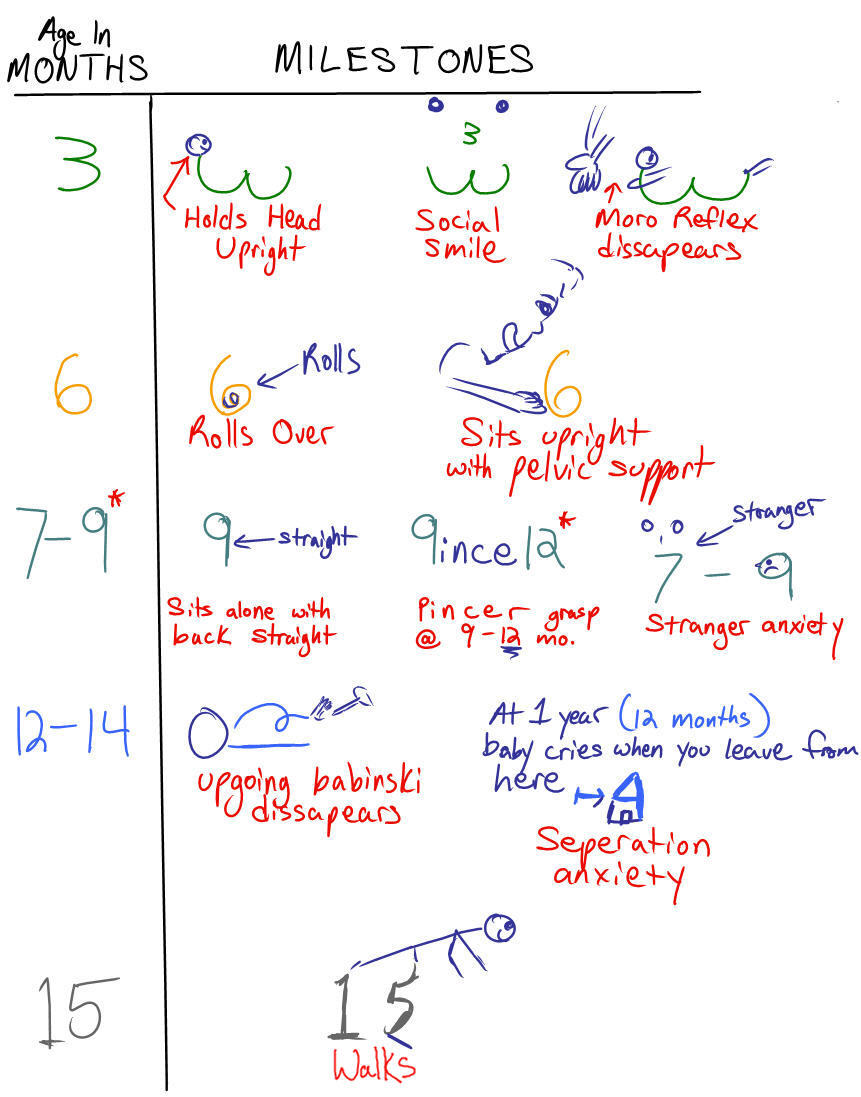 Age In
MONTHS
MILESTONES
3
3
Holds Head
Upright
Social
Smile
Moro Reflex
dissapears
6
6
Rolls
Rolls Over
6
Sits upright
with pelvic support
7-9*
9
straight
Sits alone with
back straight
9ince12*
Pincer grasp
@ 9-12 mo.
Stranger
7 - 9
Stranger anxiety
12-14
upgoing babinski
dissapears
At 1 year (12 months)
baby cries when you leave from
here
Seperation
anxiety
15
15
Walks